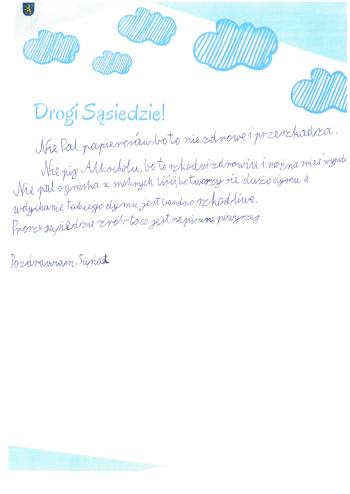 Drogi Sąsiedzie!
Nie Pal papierosów bo to nie zdrowe i przeszkadza.
Nie pij Alkocholu, bo to szkodzi zdrowiu i można mieć
Nie pal ogniska z mokrych liści, bo tworzy się dużo dymu a
wdychanie takiego dymu jest bardzo szkodliwe.
Prosze sąsiedzie zrób to co jest napisane powyrzej
Pozdrawiam, Sąsiad